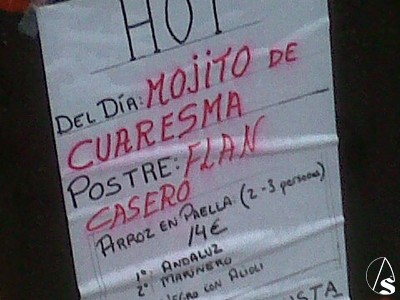 HOY
DEL DÍA: MOJITO DE
CUARESMA
POSTRE: FLAN
CASERO
ARROZ EN PAELLA: (2-3 personas)
14€
1º: ANDALUZ
2º MARINERO
NEGRO CON ALIOLI